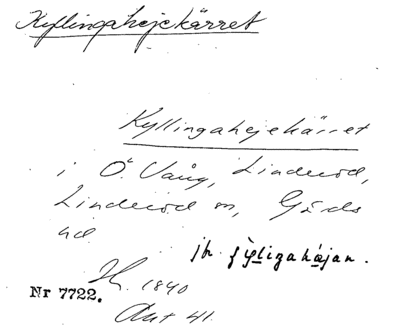 Kyllingahejekärret
Kyllingahejekärret
i Ö. Vång, Linderöd,
Linderöd sn, Gärds
hd
jfr
Nr 7722.
1840
Akt 41.